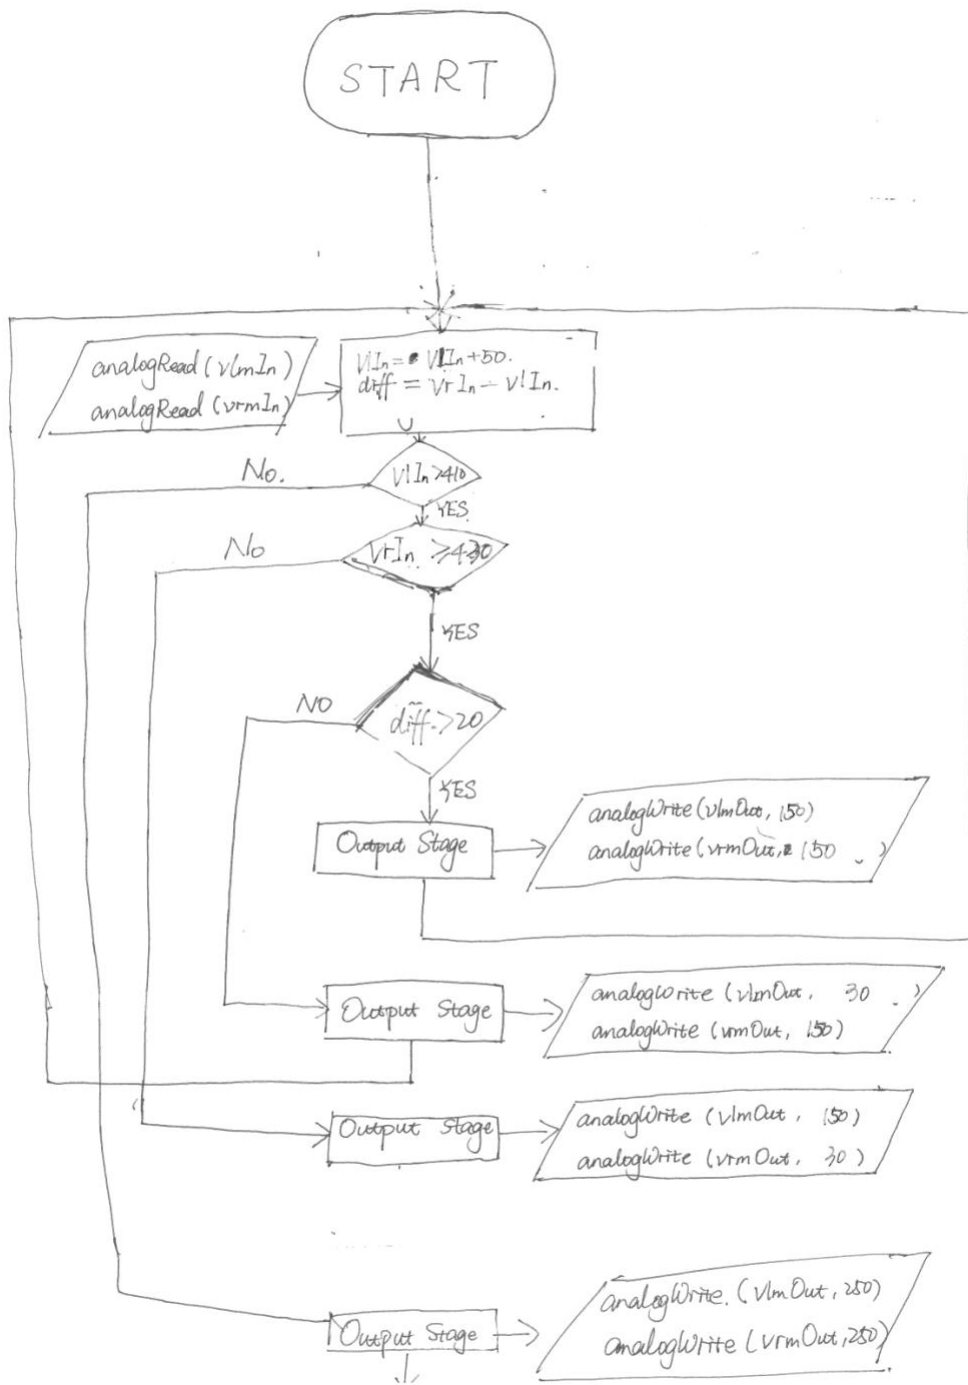 START
analogRead (vlmIn)
analogRead (vrmIn)
VlIn = VlIn+50.
diff = VrIn - VlIn.
No.
VlIn >410
YES.
No
VrIn ≥430
YES
NO
diff >20
YES
Output Stage
analogWrite (vlmOut, 150)
analogWrite (vrmOut, 150 )
Output Stage
analogWrite (vlmOut, 30 )
analogWrite (vrmOut, 150)
Output Stage
analogWrite (vlmOut, 150)
analogWrite (vrmOut, 30)
Output Stage
analogWrite. (vlmOut, 250)
analogWrite (vrmOut, 250)